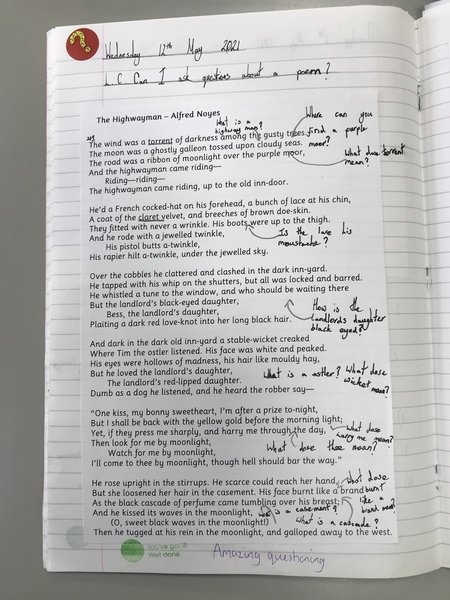 Wednesday 12th May 2021
L.C. Can I ask questions about a poem?
The Highwayman – Alfred Noyes
What is a highway man?
Where can you find a purple moor?
The wind was a torrent of darkness among the gusty trees,
The moon was a ghostly galleon tossed upon cloudy seas.
The road was a ribbon of moonlight over the purple moor,
What dose torrent mean?
And the highwayman came riding—
Riding—riding—
The highwayman came riding, up to the old inn-door.
He'd a French cocked-hat on his forehead, a bunch of lace at his chin,
A coat of the claret velvet, and breeches of brown doe-skin.
They fitted with never a wrinkle. His boots were up to the thigh.
And he rode with a jewelled twinkle,
Is the lace his moustache?
His pistol butts a-twinkle,
His rapier hilt a-twinkle, under the jewelled sky.
Over the cobbles he clattered and clashed in the dark inn-yard.
He tapped with his whip on the shutters, but all was locked and barred.
He whistled a tune to the window, and who should be waiting there
But the landlord's black-eyed daughter,
How is the landlords daughter black eyed?
Bess, the landlord's daughter,
Plaiting a dark red love-knot into her long black hair.
And dark in the dark old inn-yard a stable-wicket creaked
Where Tim the ostler listened. His face was white and peaked.
His eyes were hollows of madness, his hair like mouldy hay,
But he loved the landlord's daughter,
What is a ostler?
What dose wicket mean?
The landlord's red-lipped daughter.
Dumb as a dog he listened, and he heard the robber say—
"One kiss, my bonny sweetheart, I'm after a prize to-night,
But I shall be back with the yellow gold before the morning light;
Yet, if they press me sharply, and harry me through the day,
What dose harry me mean?
Then look for me by moonlight,
What dose thee mean?
Watch for me by moonlight,
I'll come to thee by moonlight, though hell should bar the way."
He rose upright in the stirrups. He scarce could reach her hand,
But she loosened her hair in the casement. His face burnt like a brand
What dose burnt like a brand mean?
As the black cascade of perfume came tumbling over his breast;
And he kissed its waves in the moonlight,
What is a casement?
What is a cascade?
(O, sweet black waves in the moonlight!)
Then he tugged at his rein in the moonlight, and galloped away to the west.
You've got it!
Well done.
Amazing questioning